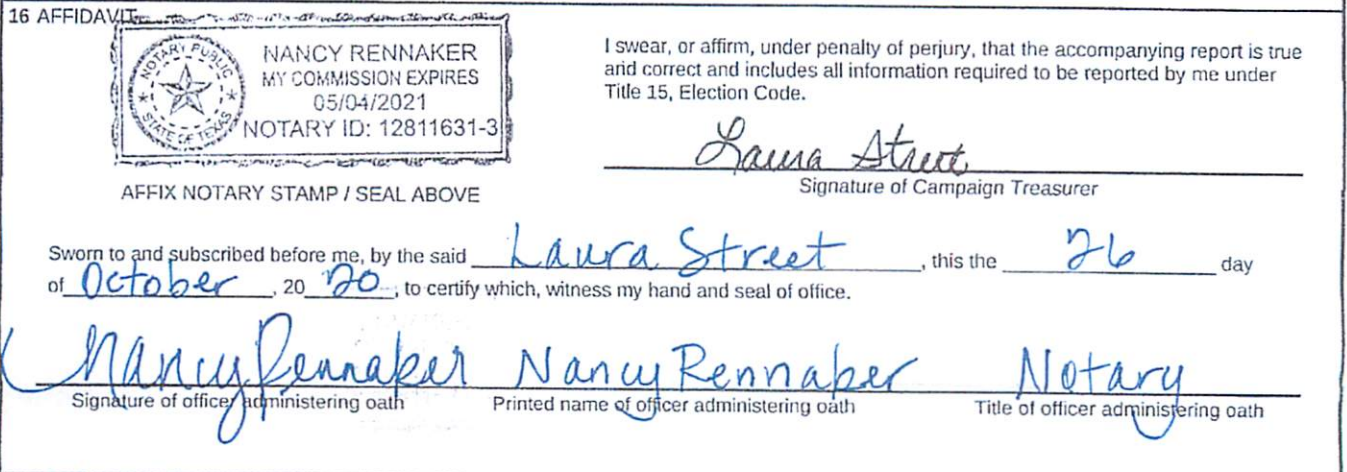 16 AFFIDAVIT
NOTARY PUBLIC
STATE OF TEXAS
NANCY RENNAKER
MY COMMISSION EXPIRES
05/04/2021
NOTARY ID: 12811631-3
AFFIX NOTARY STAMP / SEAL ABOVE
I swear, or affirm, under penalty of perjury, that the accompanying report is true
and correct and includes all information required to be reported by me under
Title 15, Election Code.
Laura Street
Signature of Campaign Treasurer
Sworn to and subscribed before me, by the said Laura Street, this the 26 day
of October, 20 20, to certify which, witness my hand and seal of office.
Nancy Rennaker Nancy Rennaker Notary
Signature of officer administering oath Printed name of officer administering oath Title of officer administering oath